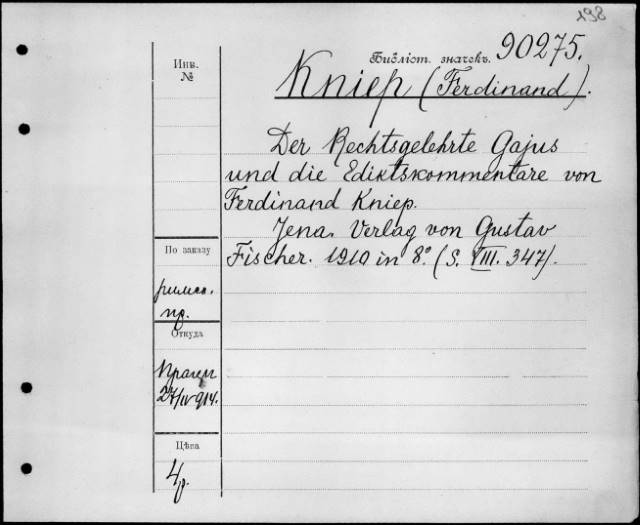 198
Инв.
№
Библіот. значекъ. 90275.
Kniep (Ferdinand).
Der Rechtsgelehrte Gajus
und die Ediktskommentare von
Ferdinand Kniep.
Jena. Verlag von Gustav
Fischer. 1910 in 8º. (S. VIII. 347).
По заказу
римск.
пр.
Откуда
27/IV 914.
Цѣна
4 р.